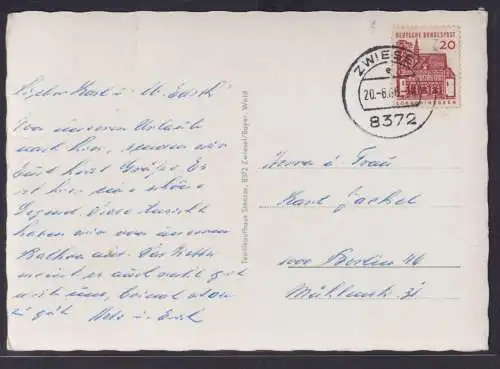 DEUTSCHE BUNDESPOST
20
LORSCH/HESSEN
ZWIESEL
20.-6.66
8372
Lieber Karl u.
Von unserem Urlaub
nach hier, senden wir
Euch herzl. Grüße. Es
ist hier eine schöne
Gegend. Diese Aussicht
haben wir von unserem
Balkon aus. Das Wetter
meint es auch recht gut
mit uns,
zu gut. u. Erich
8372 Zwiesel/Bayer. Wald
Herrn u. Frau
Karl Jäckel
1000 Berlin 46
Mühlenstr. 31